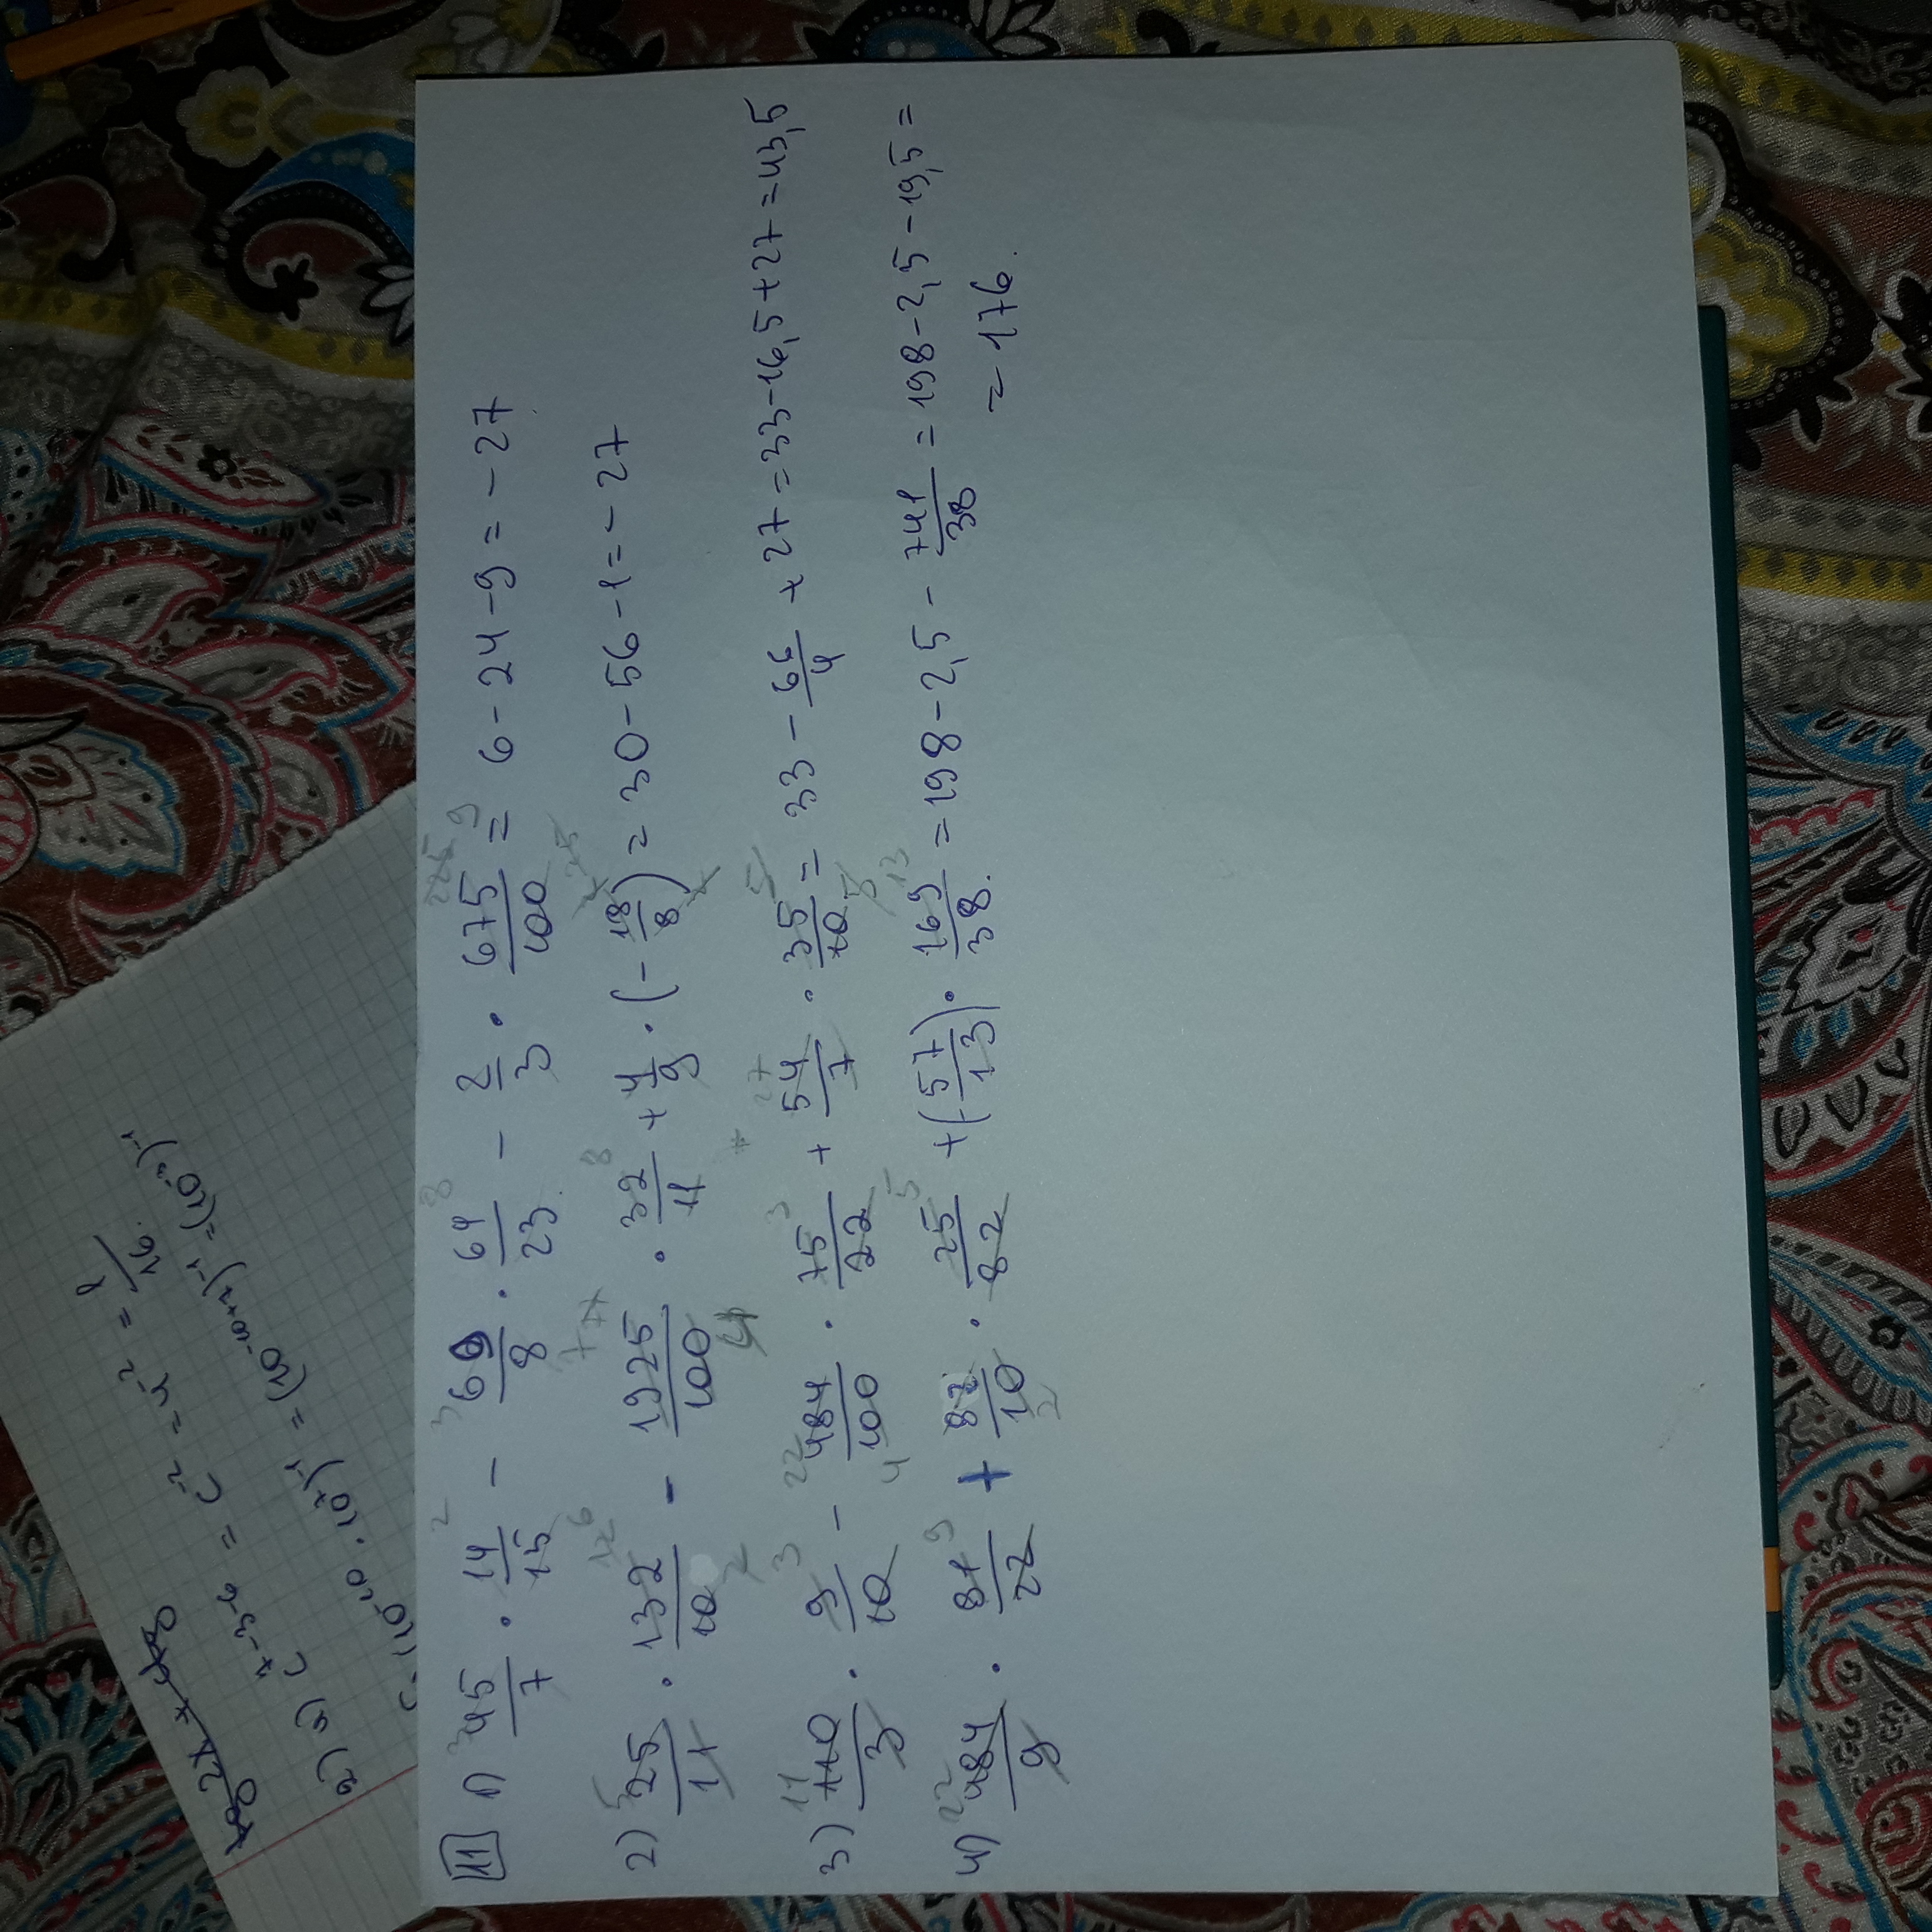 11 1) 45/7 · 14/15 - 69/8 · 64/23 - 2/3 · 675/100 = 6 - 24 - 9 = - 27
2) 25/11 · 132/10 - 1925/100 · 32/11 + 4/9 · (- 18/8) = 30 - 56 - 1 = - 27
3) 110/3 · 9/10 - 484/100 · 75/22 + 54/7 · 35/10 = 33 - 66/4 + 27 = 33 - 16,5 + 27 = 43,5
4) 484/9 · 81/22 + 82/10 · 25/82 + (- 57/13) · 169/38 = 198 - 2,5 - 741/38 = 198 - 2,5 - 19,5 =
= 176.
2) 3) c^7-3-6 = c^-2 = 4^-2 = 1/16.